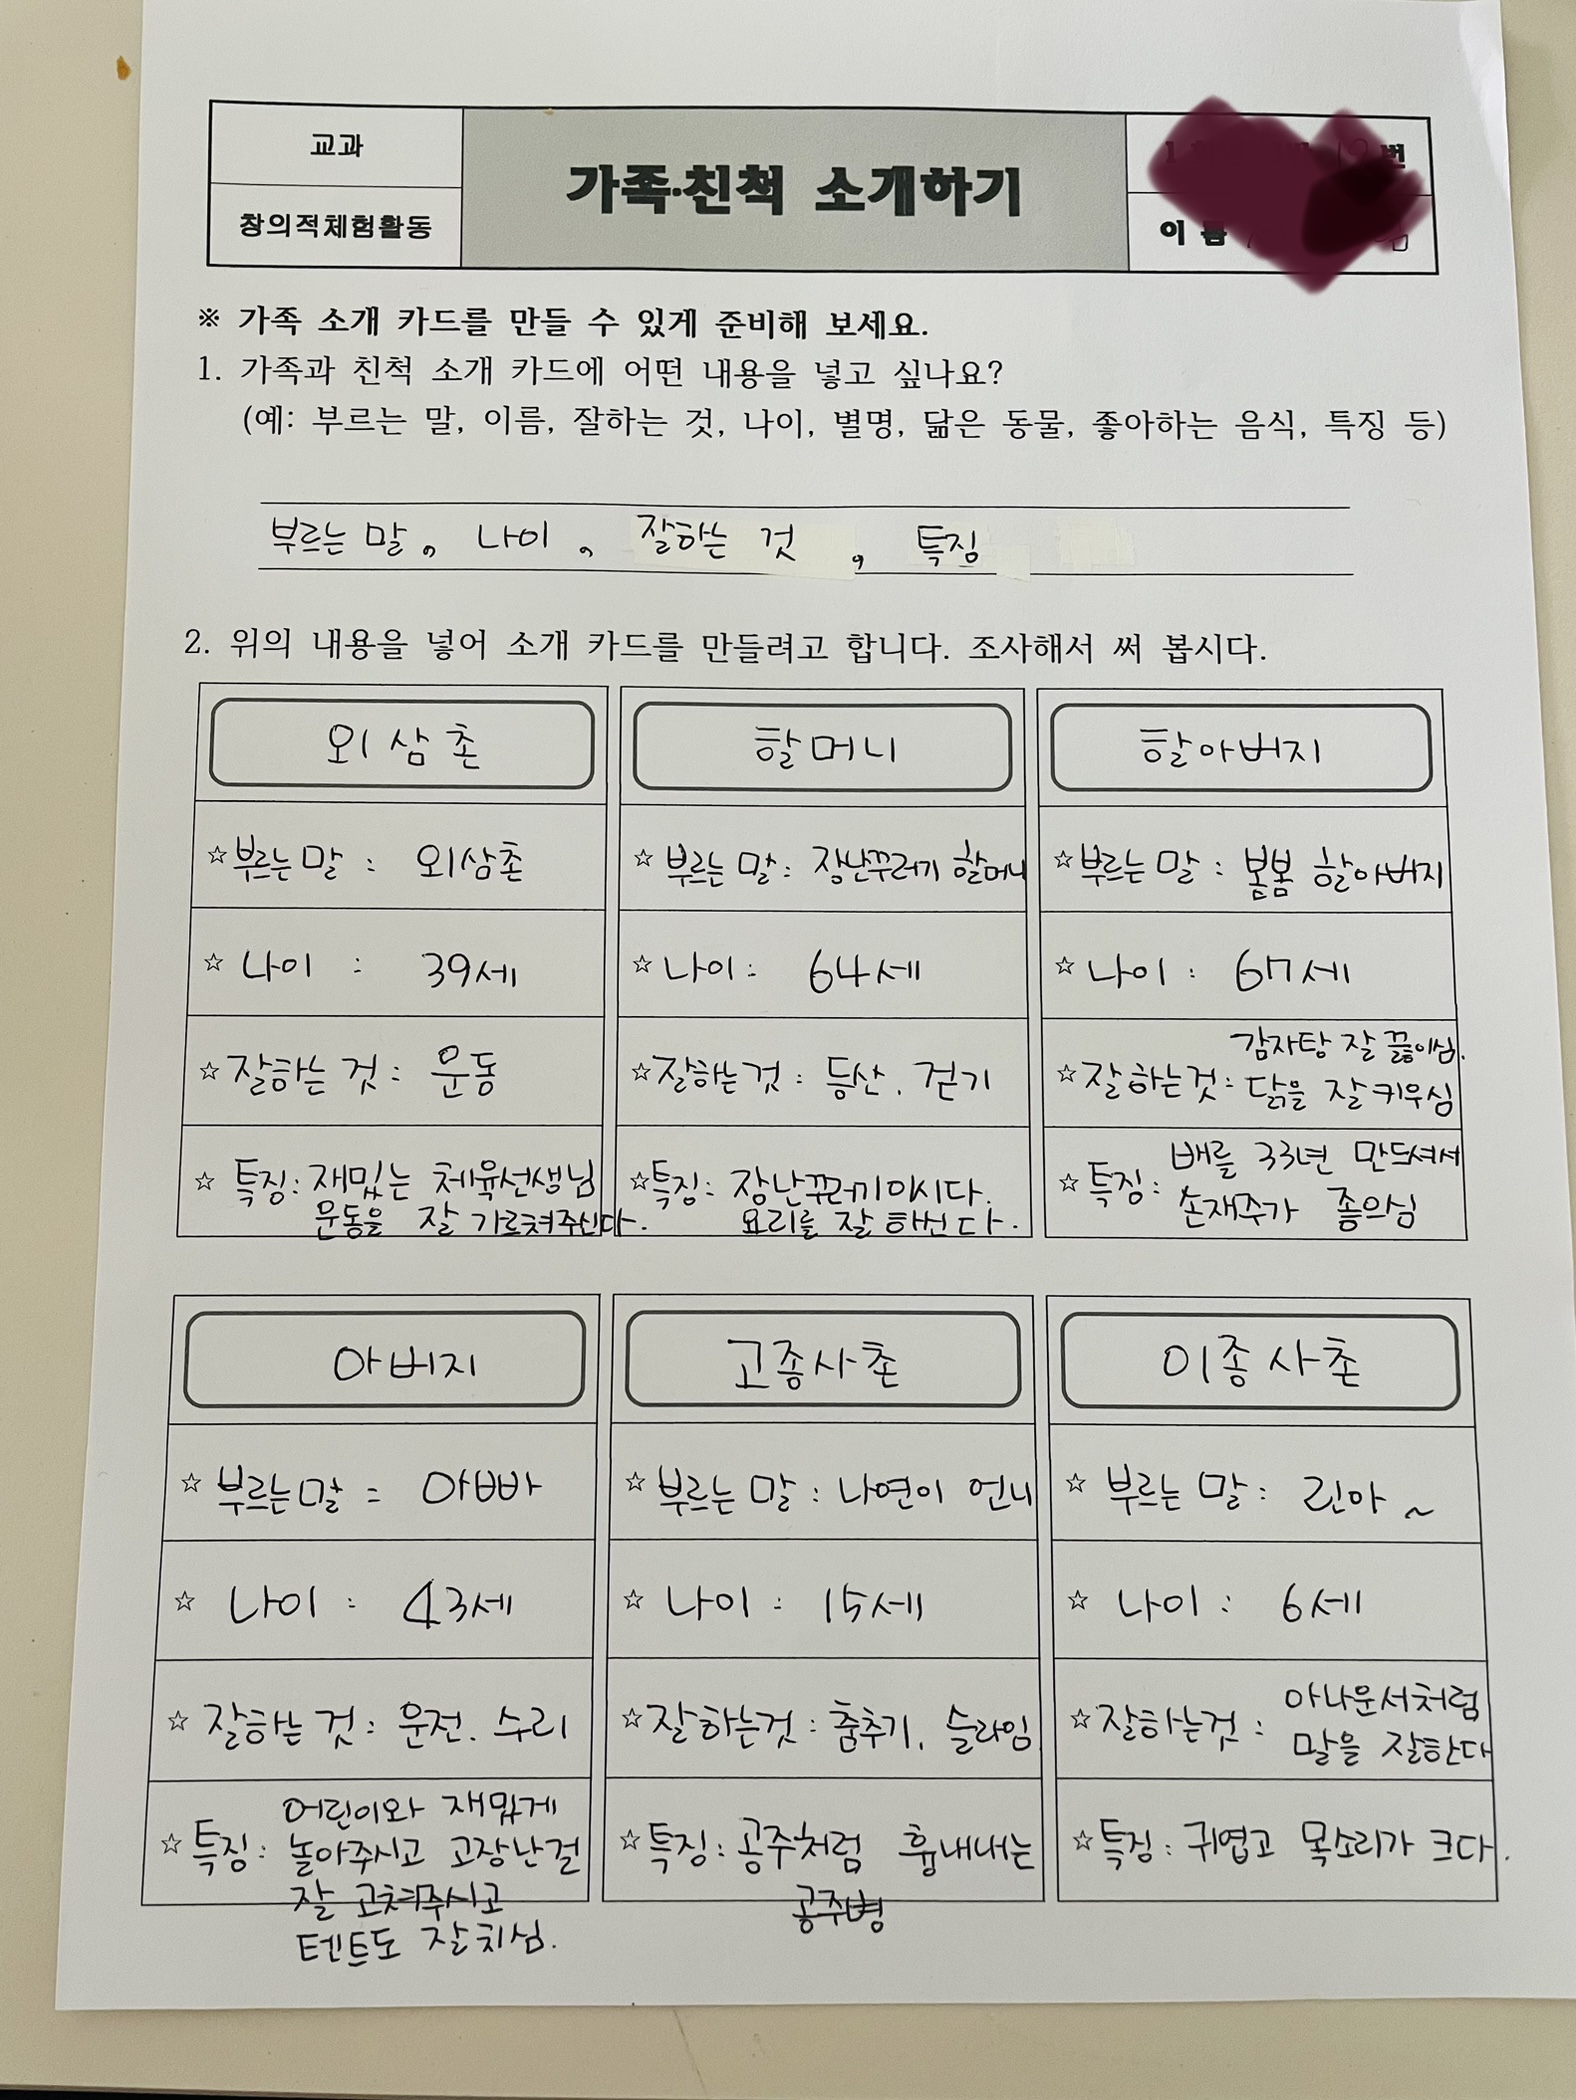 교과
창의적체험활동
가족·친척 소개하기
번
이 름
※ 가족 소개 카드를 만들 수 있게 준비해 보세요.
1. 가족과 친척 소개 카드에 어떤 내용을 넣고 싶나요?
(예: 부르는 말, 이름, 잘하는 것, 나이, 별명, 닮은 동물, 좋아하는 음식, 특징 등)
부르는 말, 나이, 잘하는 것, 특징
2. 위의 내용을 넣어 소개 카드를 만들려고 합니다. 조사해서 써 봅시다.
외삼촌
☆부르는 말 : 외삼촌
☆ 나이 : 39세
☆잘하는 것 : 운동
☆ 특징: 재밌는 체육선생님
운동을 잘 가르쳐주신다.
할머니
☆ 부르는 말: 장난꾸러기 할머니
☆ 나이: 64세
☆잘하는것 : 등산. 걷기
☆특징: 장난꾸러기이시다.
요리를 잘 하신다.
할아버지
☆부르는 말 : 봄봄 할아버지
☆ 나이 : 67세
☆잘하는것: 감자탕 잘 끓이심.
닭을 잘키우심
☆특징: 배를 33년 만드셔서
손재주가 좋의심
아버지
☆ 부르는말 : 아빠
☆ 나이 : 43세
☆ 잘하는 것: 운전. 수리
☆특징: 어린이와 재밌게
놀아주시고 고장난걸
잘 고쳐주시고
텐트도 잘치심.
고종사촌
☆ 부르는 말 : 나연이 언니
☆ 나이 : 15세
☆잘하는것 : 춤추기, 슬라임
☆특징: 공주처럼 흉내내는
공주병
이종사촌
☆ 부르는 말: 린아~
☆ 나이 : 6세
☆잘하는것 : 아나운서처럼
말을 잘한다
☆특징: 귀엽고 목소리가 크다.